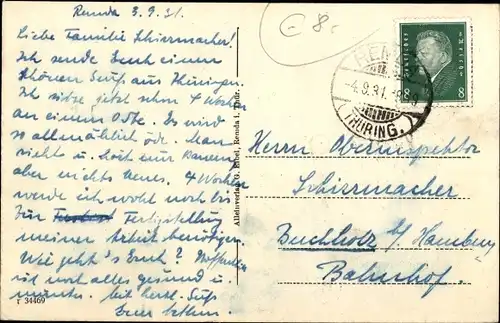 Remda 3.9.31.
Liebe Familie Schirrmacher!
Ich sende Euch einen
schönen Gruß aus Thüringen.
Ich sitze jetzt schon 4 Wochen
an einem Orte. Es wird
so allmählich öde. Man
sieht u. hört nur Bauern
aber nichts neues. 4 Wochen
werde ich wohl noch bis
zur Fertigstellung
meiner Arbeit benötigen.
Wie geht's Euch? Hoffentlich
ist noch alles gesund u.
munter. Mit herzl. Gruß
Euer
r 34469
Alleinverlag O. Remda i. Thür.
8.
REMDA
-4.9.31.
THÜRING.
8 8
Herrn Oberinspektor
Schirrmacher
Buchholz b/ Hamburg
Bahnhof.